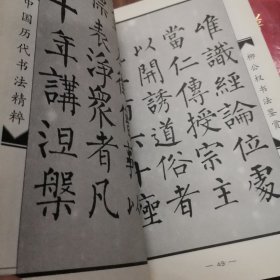 柳公权书法鉴赏
唯識經論位處
當仁傳授宗主
以開誘道俗者
六十座
— 49 —
表淨眾者凡
十年講涅槃
中国历代书法精粹